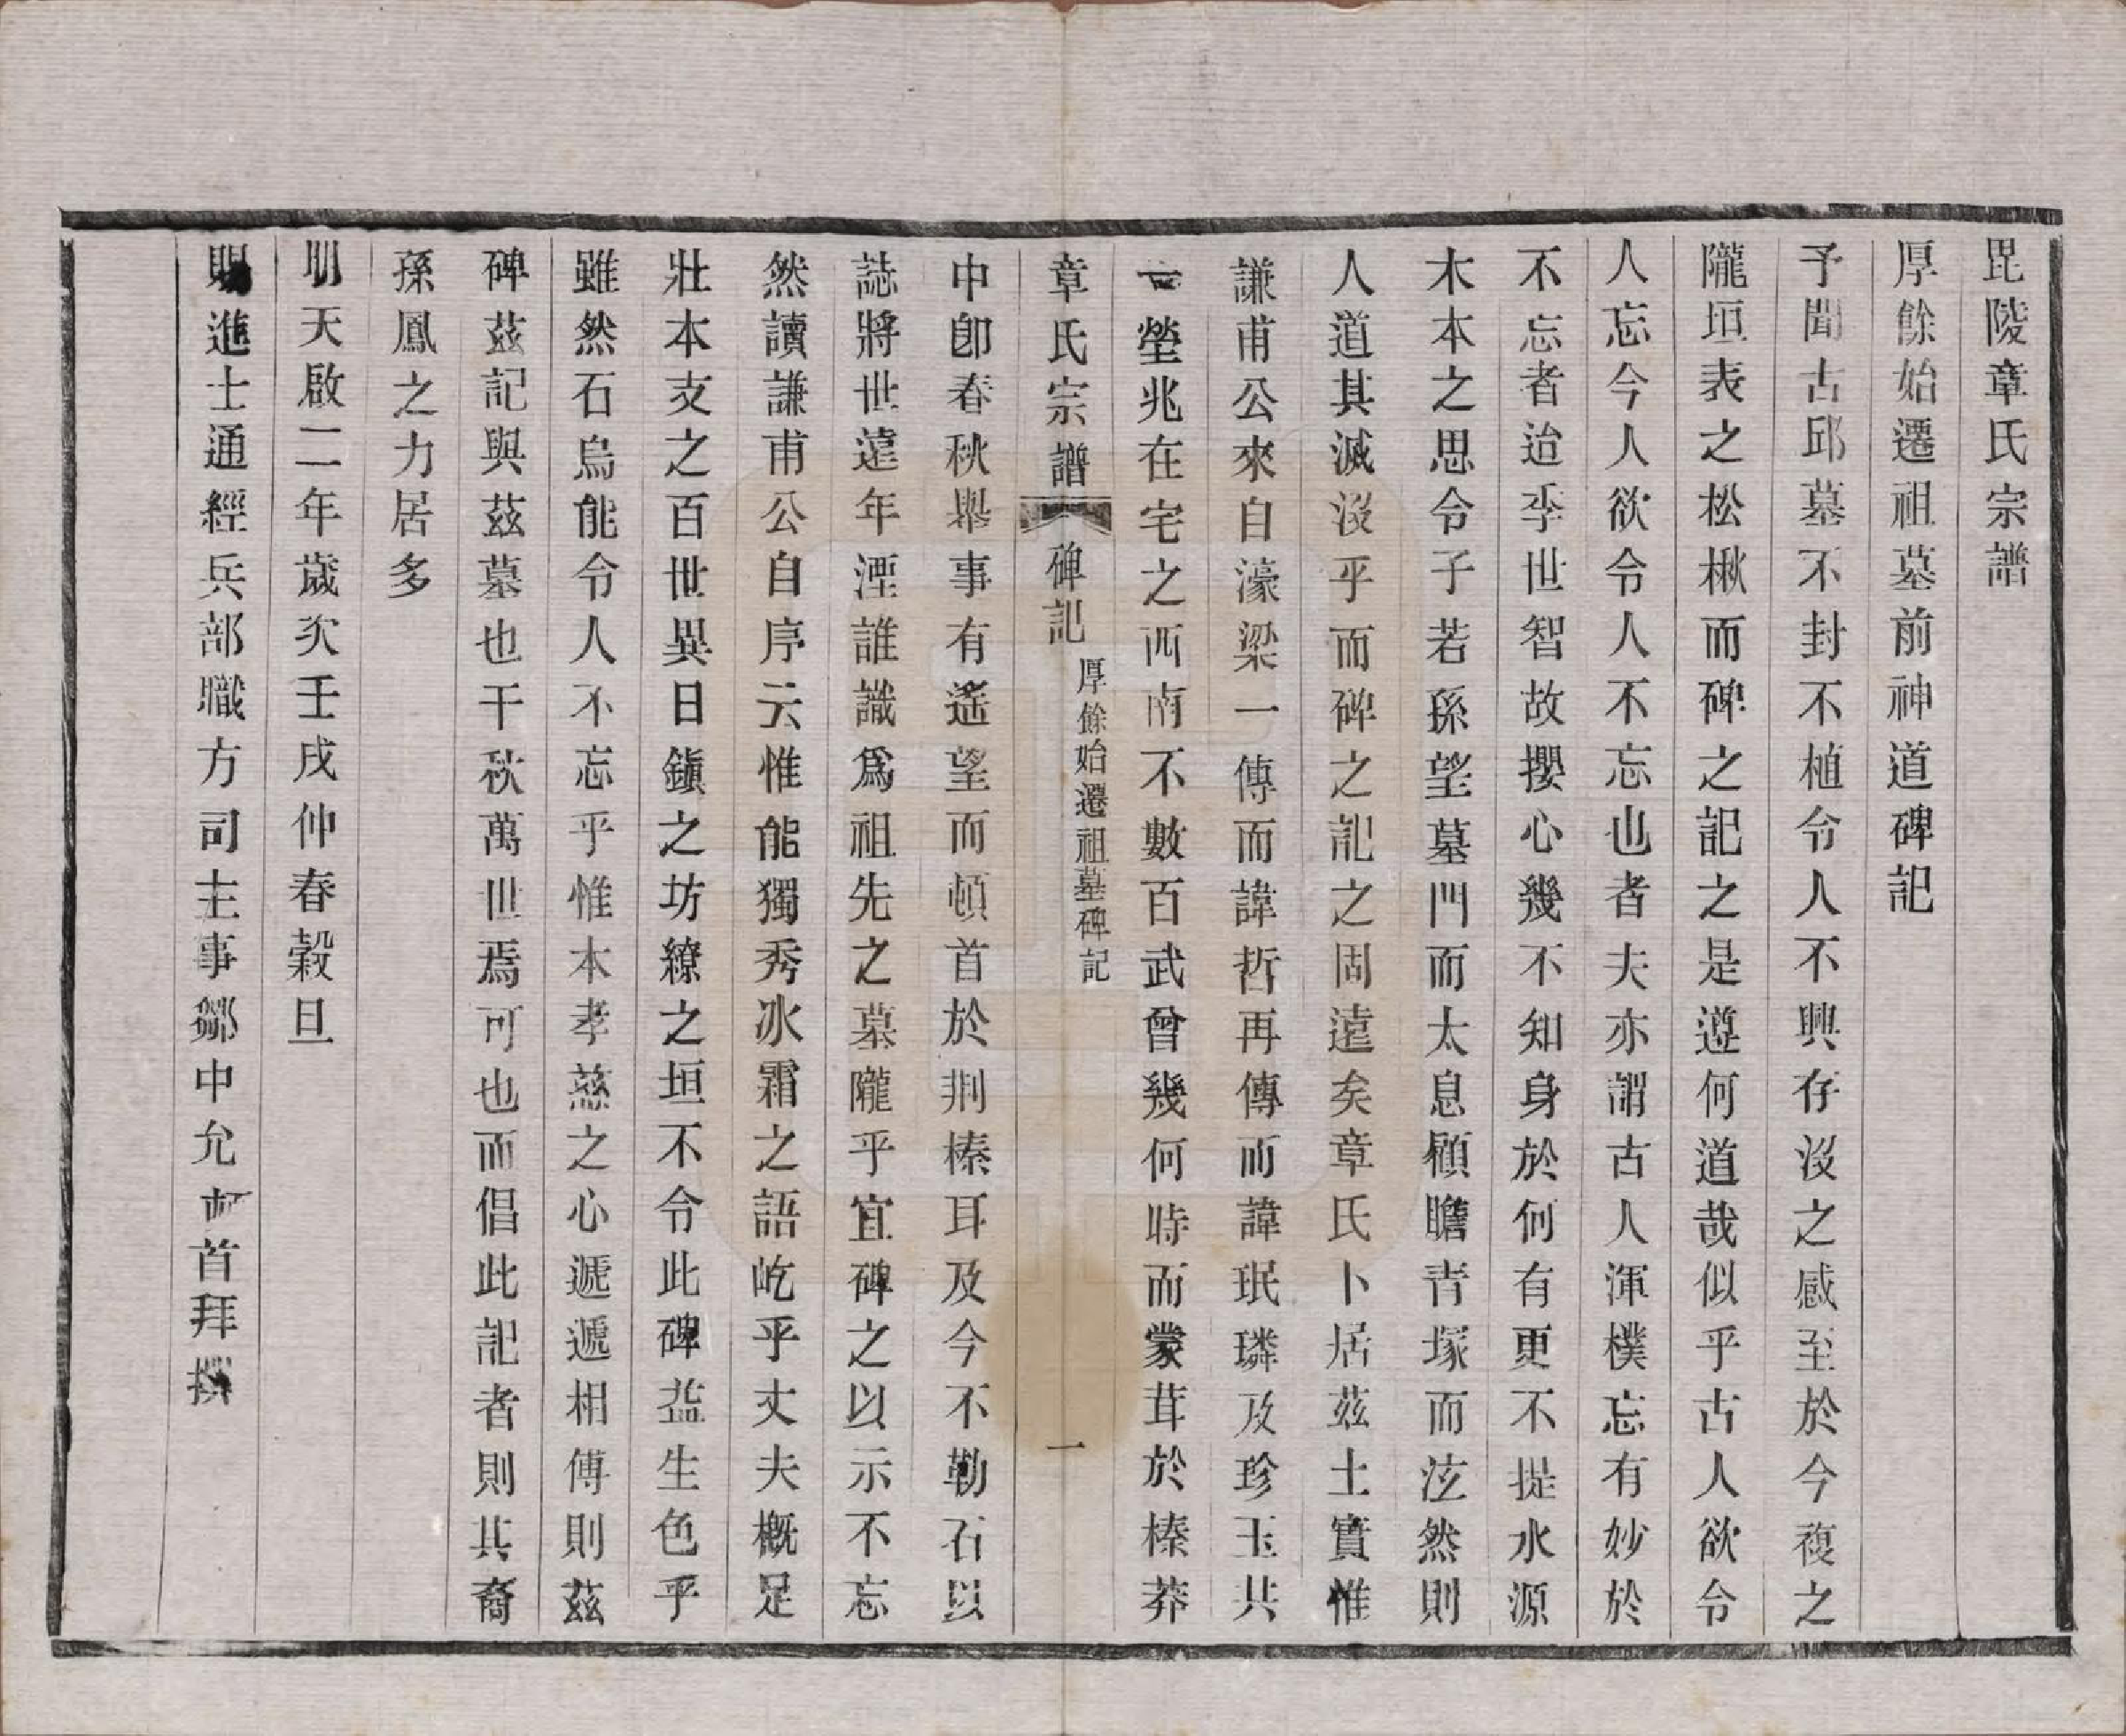 毘陵章氏宗譜
厚餘始遷祖墓前神道碑記
予聞古邱墓不封不植令人不興存沒之感至於今複之
隴垣表之松楸而碑之記之是遵何道哉似乎古人欲令
人忘今人欲令人不忘也者夫亦謂古人渾樸忘有妙於
不忘者迨季世智故攖心幾不知身於何有更不提水源
木本之思令子若孫望墓門而太息顧瞻青塚而泫然則
人道其滅沒乎而碑之記之固遠矣章氏卜居茲土實惟
謙甫公來自濠梁一傳而諱哲再傳而諱珉璘及珍玉共
塋兆在宅之西南不數百武曾幾何時而蒙茸於榛莽
章氏宗譜 碑記 厚餘始遷祖墓碑記 一
中卽春秋舉事有遙望而頓首於荆榛耳及今不勒石以
誌將世遠年湮誰識爲祖先之墓隴乎宜碑之以示不忘
然讀謙甫公自序云惟能獨秀冰霜之語屹乎丈夫概足
壯本支之百世異日鎭之坊繚之垣不令此碑益生色乎
雖然石烏能令人不忘乎惟本孝慈之心遞遞相傳則茲
碑茲記與茲墓也千秋萬世焉可也而倡此記者則其裔
孫鳳之力居多
明天啟二年歲次壬戌仲春穀旦
賜進士通經兵部職方司主事鄒中允首拜撰